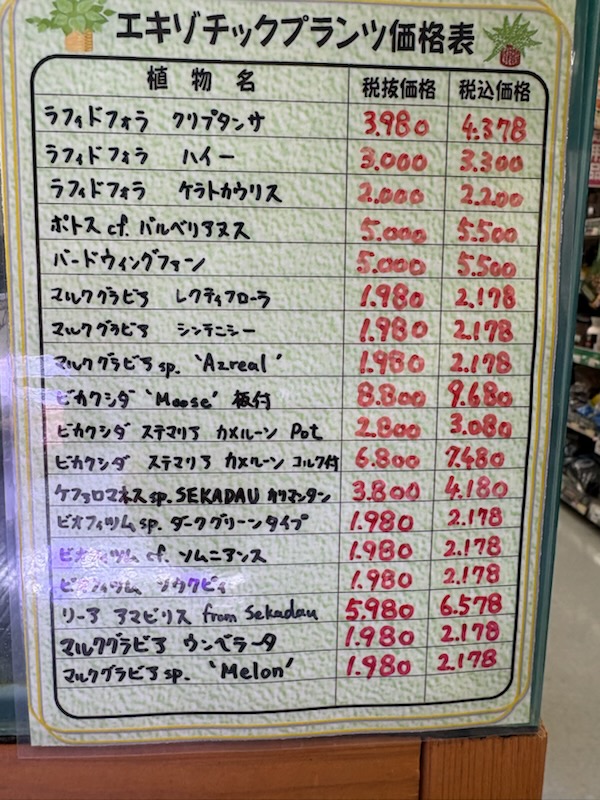 エキゾチックプランツ価格表
植物名 税抜価格 税込価格
ラフィドフォラ クリプタンサ 3.980 4.378
ラフィドフォラ ハイー 3.000 3.300
ラフィドフォラ ケラトカウリス 2.000 2.200
ポトス cf. バルベリアヌス 5.000 5.500
バードウィングファン 5.000 5.500
マルクグラビア レクティフローラ 1.980 2.178
マルクグラビア シンテニシー 1.980 2.178
マルクグラビア sp. 'Azreal' 1.980 2.178
ビカクシダ 'Moose' 板付 8.800 9.680
ビカクシダ ステマリア カメルーン Pot 2.800 3.080
ビカクシダ ステマリア カメルーン コルク付 6.800 7.480
ケファロマネス sp. SEKADAU カリマンタン 3.800 4.180
ビオフィツム sp. ダークグリーンタイプ 1.980 2.178
ビオフィツム cf. ソムニアンス 1.980 2.178
ビオフィツム ソウクビィ 1.980 2.178
リーア アマビリス from Sekadau 5.980 6.578
マルクグラビア ウンベラータ 1.980 2.178
マルクグラビア sp. 'Melon' 1.980 2.178